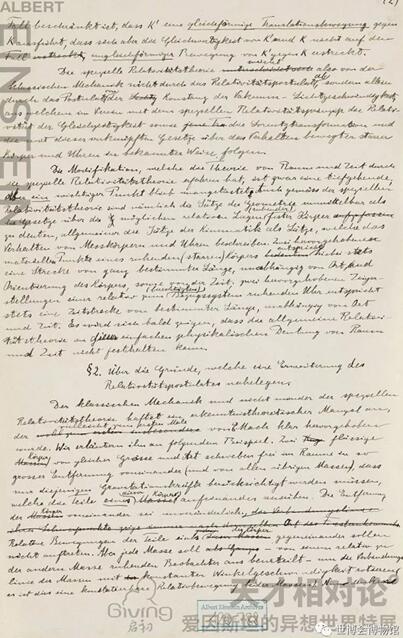 ALBERT
EINSTEIN
(2)
Falle beschränkt ist, dass K' eine gleichförmige Translationsbewegung gegen
K ausführt, dass sich aber die Gleichwertigkeit von K und K' nicht auf den
Fall ungleichförmiger Bewegung von K' gegen K erstreckt.
Die spezielle Relativitätstheorie weicht also von der
klassischen Mechanik nicht durch das Relativitätspostulat ab, sondern allein
durch das Postulat der Konstanz der Vakuum-Lichtgeschwindigkeit,
aus welchem im Verein mit dem speziellen Relativitätsprinzip die Relati-
vität der Gleichzeitigkeit sowie die Lorentztransformation und
die mit dieser verknüpften Gesetze über das Verhalten bewegter starrer
Körper und Uhren in bekannter Weise folgen.
Die Modifikation, welche die Theorie von Raum und Zeit durch
die spezielle Relativitätstheorie erfahren hat, ist zwar eine tiefgehende,
aber ein wichtiger Punkt blieb unangetastet. Auch gemäss der speziellen
Relativitätstheorie sind nämlich die Sätze der Geometrie unmittelbar als
die Gesetze über die möglichen relativen Lagen (ruhender) fester Körper
zu deuten, allgemeiner die Sätze der Kinematik als Sätze, welche das
Verhalten von Messkörpern und Uhren beschreiben. Zwei hervorgehobenen
materiellen Punkten eines ruhenden (starren) Körpers entspricht hiebei stets
eine Strecke von ganz bestimmter Länge, unabhängig von Ort und
Orientierung des Körpers, sowie von der Zeit; zwei hervorgehobenen Zeiger-
stellungen einer relativ zum (berechtigten) Bezugssystem ruhenden Uhr entspricht
stets eine Zeitstrecke von bestimmter Länge, unabhängig von Ort
und Zeit. Es wird sich bald zeigen, dass die allgemeine Relativi-
tätstheorie an dieser einfachen physikalischen Deutung von Raum
und Zeit nicht festhalten kann.
§2. Über die Gründe, welche eine Erweiterung des
Relativitätspostulates nahelegen.
Der klassischen Mechanik und nicht minder der speziellen
Relativitätstheorie haftet ein erkenntnistheoretischer Mangel an,
der vielleicht zum ersten Male von E. Mach klar hervorgehoben
wurde. Wir erläutern ihn an folgendem Beispiel. Zwei flüssige
Körper von gleicher Grösse und Art schweben frei im Raume in so
grosser Entfernung voneinander (und von allen übrigen Massen), dass
nur diejenigen Gravitationskräfte berücksichtigt werden müssen,
welche die Teile eines dieser Körper aufeinander ausüben. Die Entfernung
der Körper voneinander sei unveränderlich.
Relative Bewegungen der Teile eines der Körper gegeneinander sollen
nicht auftreten. Aber jede Masse soll – von einem relativ zu
der anderen Masse ruhenden Beobachter aus beurteilt – um die Verbindungs-
linie der Massen mit konstanter Winkelgeschwindigkeit rotieren
Albert Einstein Archives
Giving
启引
天才相对论
爱因斯坦的异想世界特展
世博会博物馆